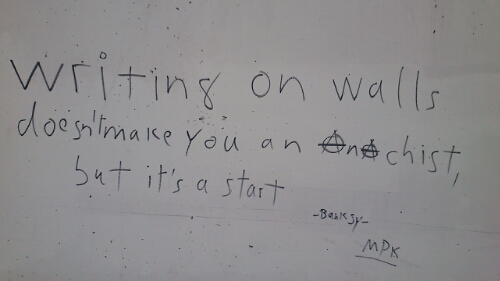 Writing on walls
doesn't make you an Anachist,
but it's a start
-Banksy-
MPK